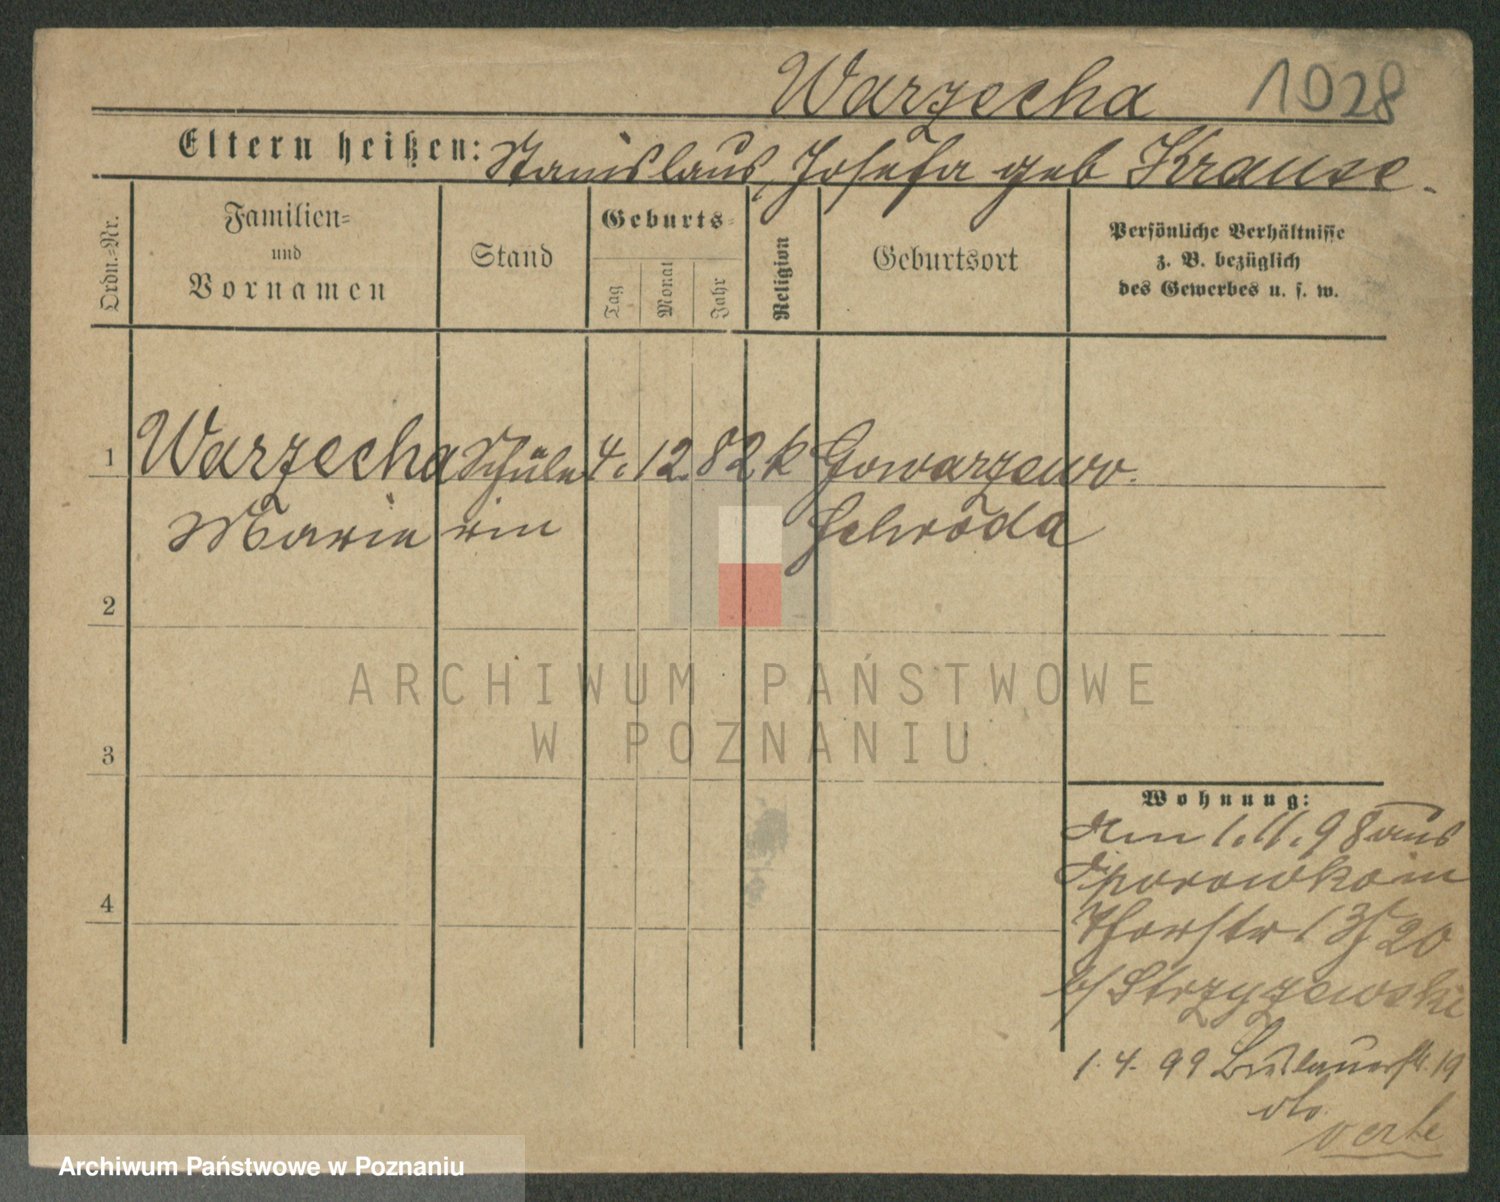 Warzecha 1028
Eltern heißen: Stanislaus, Josefa geb Krause.
Ordn.-Nr.
Familien-
und
Vornamen
Stand
Geburts-
Tag
Monat
Jahr
Religion
Geburtsort
Persönliche Verhältnisse
z. B. bezüglich
des Gewerbes u. s. w.
1 Warzecha Schüle 4. 12. 82 k Gowarzewo.
Marie rin Schroda
2
3
4
ARCHIWUM PAŃSTWOWE
W POZNANIU
Wohnung:
Am 1.11.98 aus
in
20
b/ Strzyzewski
1.4.99 Breslauerstr. 19
do.
verte
Archiwum Państwowe w Poznaniu